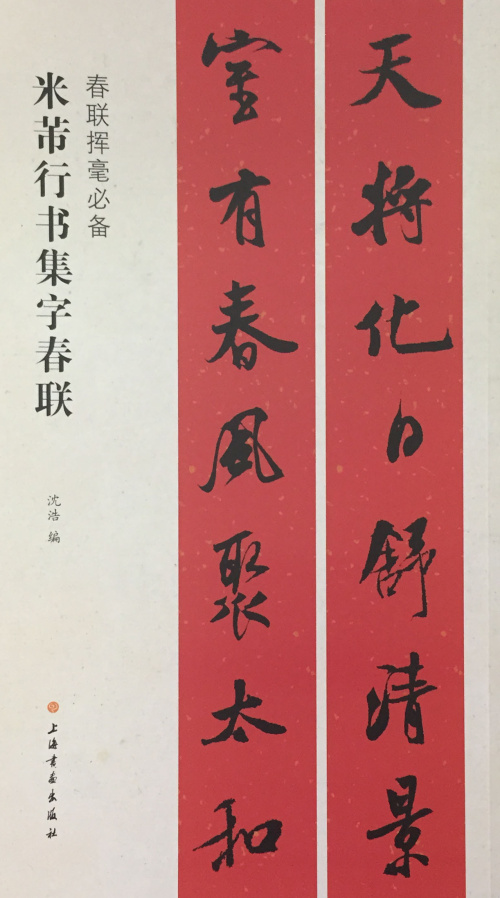 天将化日舒清景
室有春风聚太和
春联挥毫必备
米芾行书集字春联
沈浩 编
上海书画出版社